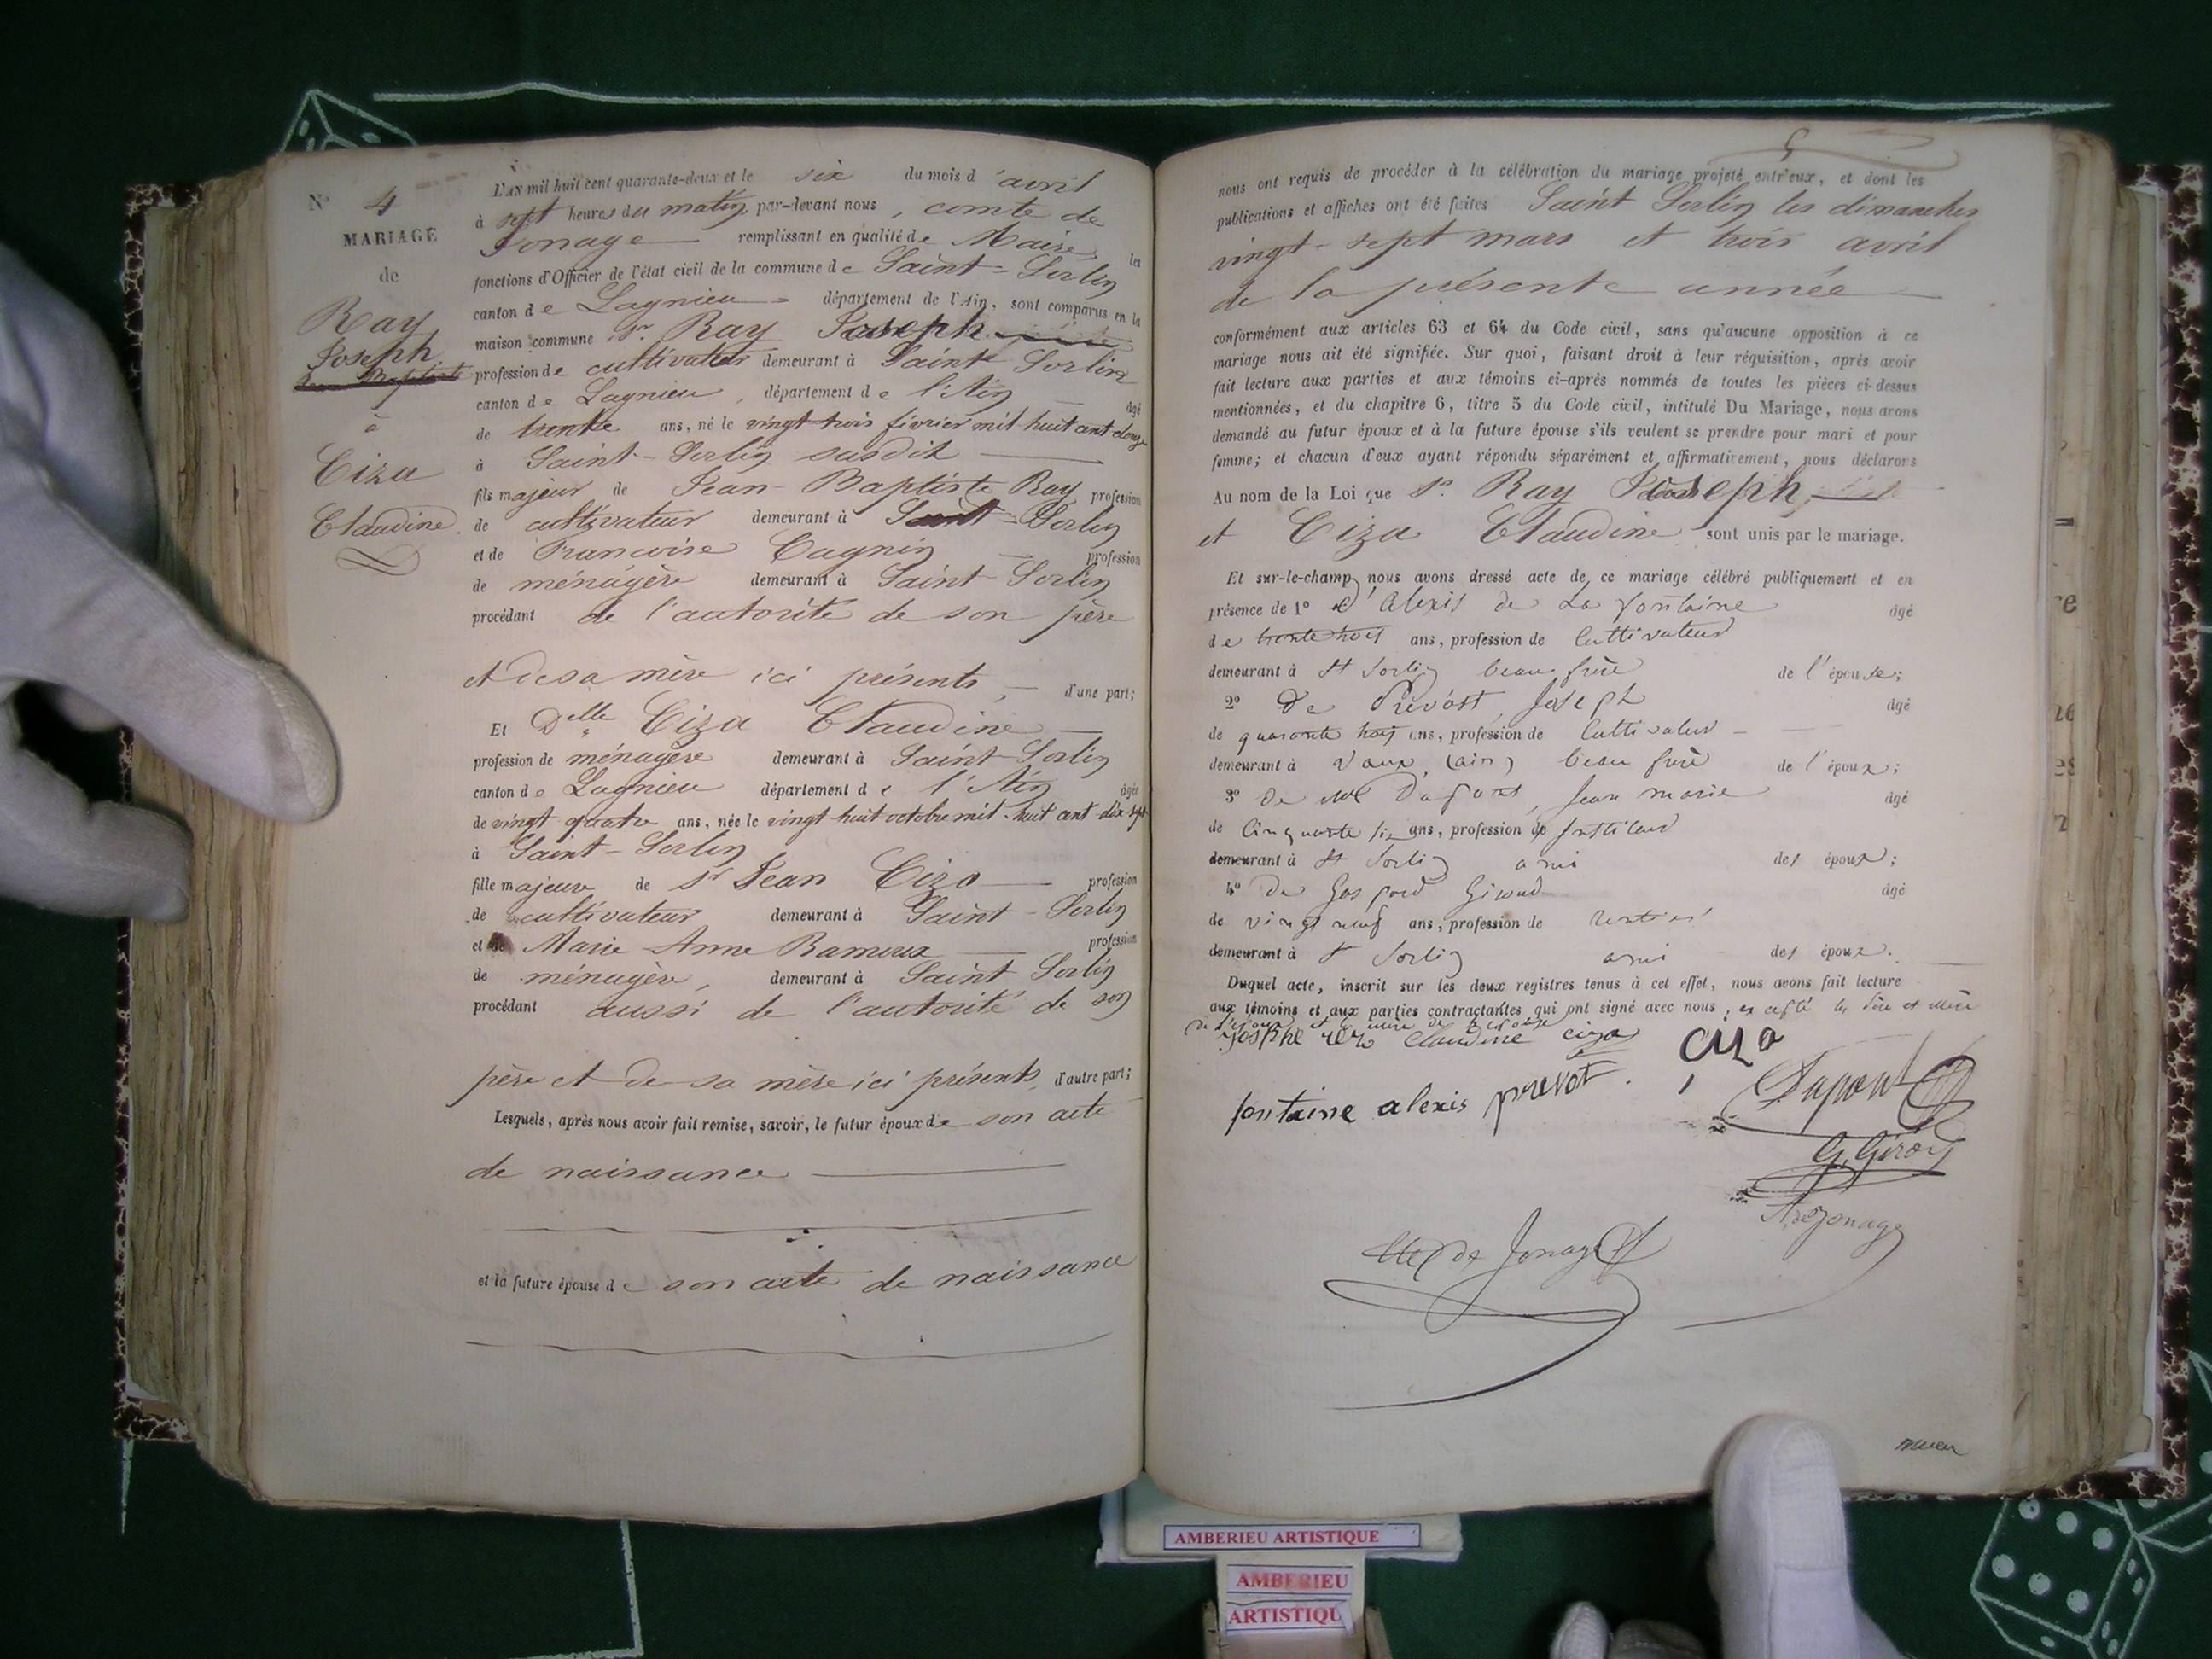 N° 4
MARIAGE
de
Ray
Joseph
Jean Baptiste
à
Ciza
Claudine
L'AN mil huit cent quarante-deux et le six du mois d'avril
à sept heures du matin par-devant nous, comte de
Jonage remplissant en qualité de Maire les
fonctions d'Officier de l'état civil de la commune de Saint-Sorlin
canton de Lagnieu département de l'Ain, sont comparus en la
maison commune Sr Ray Joseph
profession de cultivateur demeurant à Saint Sorlin
canton de Lagnieu, département de l'Ain âgé
de trente ans, né le vingt trois février mil huit cent douze
à Saint-Sorlin susdit
fils majeur de Jean-Baptiste Ray profession
de cultivateur demeurant à Saint-Sorlin
et de Francoise Cagnin profession
de ménagère demeurant à Saint-Sorlin
procédant de l'autorité de son père
et de sa mère ici présents, d'une part;
Et Delle Ciza Claudine
profession de ménagère demeurant à Saint-Sorlin
canton de Lagnieu département de l'Ain âgée
de vingt quatre ans, née le vingt huit octobre mil huit cent dix sept
à Saint-Sorlin
fille majeure de Sr Jean Ciza profession
de cultivateur demeurant à Saint-Sorlin
et de Marie-Anne Rameux profession
de ménagère, demeurant à Saint Sorlin
procédant aussi de l'autorité de son
père et de sa mère ici présents d'autre part;
Lesquels, après nous avoir fait remise, savoir, le futur époux de son acte
de naissance
et la future épouse de son acte de naissance
5
nous ont requis de procéder à la célébration du mariage projeté entr'eux, et dont les
publications et affiches ont été faites Saint Sorlin les dimanches
vingt-sept mars et trois avril
de la présente année
conformément aux articles 63 et 64 du Code civil, sans qu'aucune opposition à ce
mariage nous ait été signifiée. Sur quoi, faisant droit à leur réquisition, après avoir
fait lecture aux parties et aux témoins ci-après nommés de toutes les pièces ci-dessus
mentionnées, et du chapitre 6, titre 5 du Code civil, intitulé Du Mariage, nous avons
demandé au futur époux et à la future épouse s'ils veulent se prendre pour mari et pour
femme; et chacun d'eux ayant répondu séparément et affirmativement, nous déclarons
Au nom de la Loi que Sr. Ray Joseph,
et Ciza Claudine sont unis par le mariage.
Et sur-le-champ nous avons dressé acte de ce mariage célébré publiquement et en
présence de 1° d'Alexis de La fontaine âgé
de trente trois ans, profession de Cultivateur
demeurant à St Sorlin beau frère de l'épouse;
2° De Prévost, Joseph âgé
de quarante trois ans, profession de Cultivateur
demeurant à Vaux (ain) beau frère de l'époux;
3° De Mr Dupont, Jean marie âgé
de Cinquante six ans, profession de Instituteur
demeurant à St Sorlin ami des époux;
4° De Gaspard Giroud âgé
de vingt neuf ans, profession de rentier
demeurant à St Sorlin ami des époux.
Duquel acte, inscrit sur les deux registres tenus à cet effet, nous avons fait lecture
aux témoins et aux parties contractantes qui ont signé avec nous, les père et mère
de l'époux et la mère de l'épouse
Josphe rey Claudine ciza Ciza
fontaine alexis prevot Dupont
G. Giroud
A. de Jonage
Cte de Jonage
AMBERIEU ARTISTIQUE
AMBERIEU
ARTISTIQU